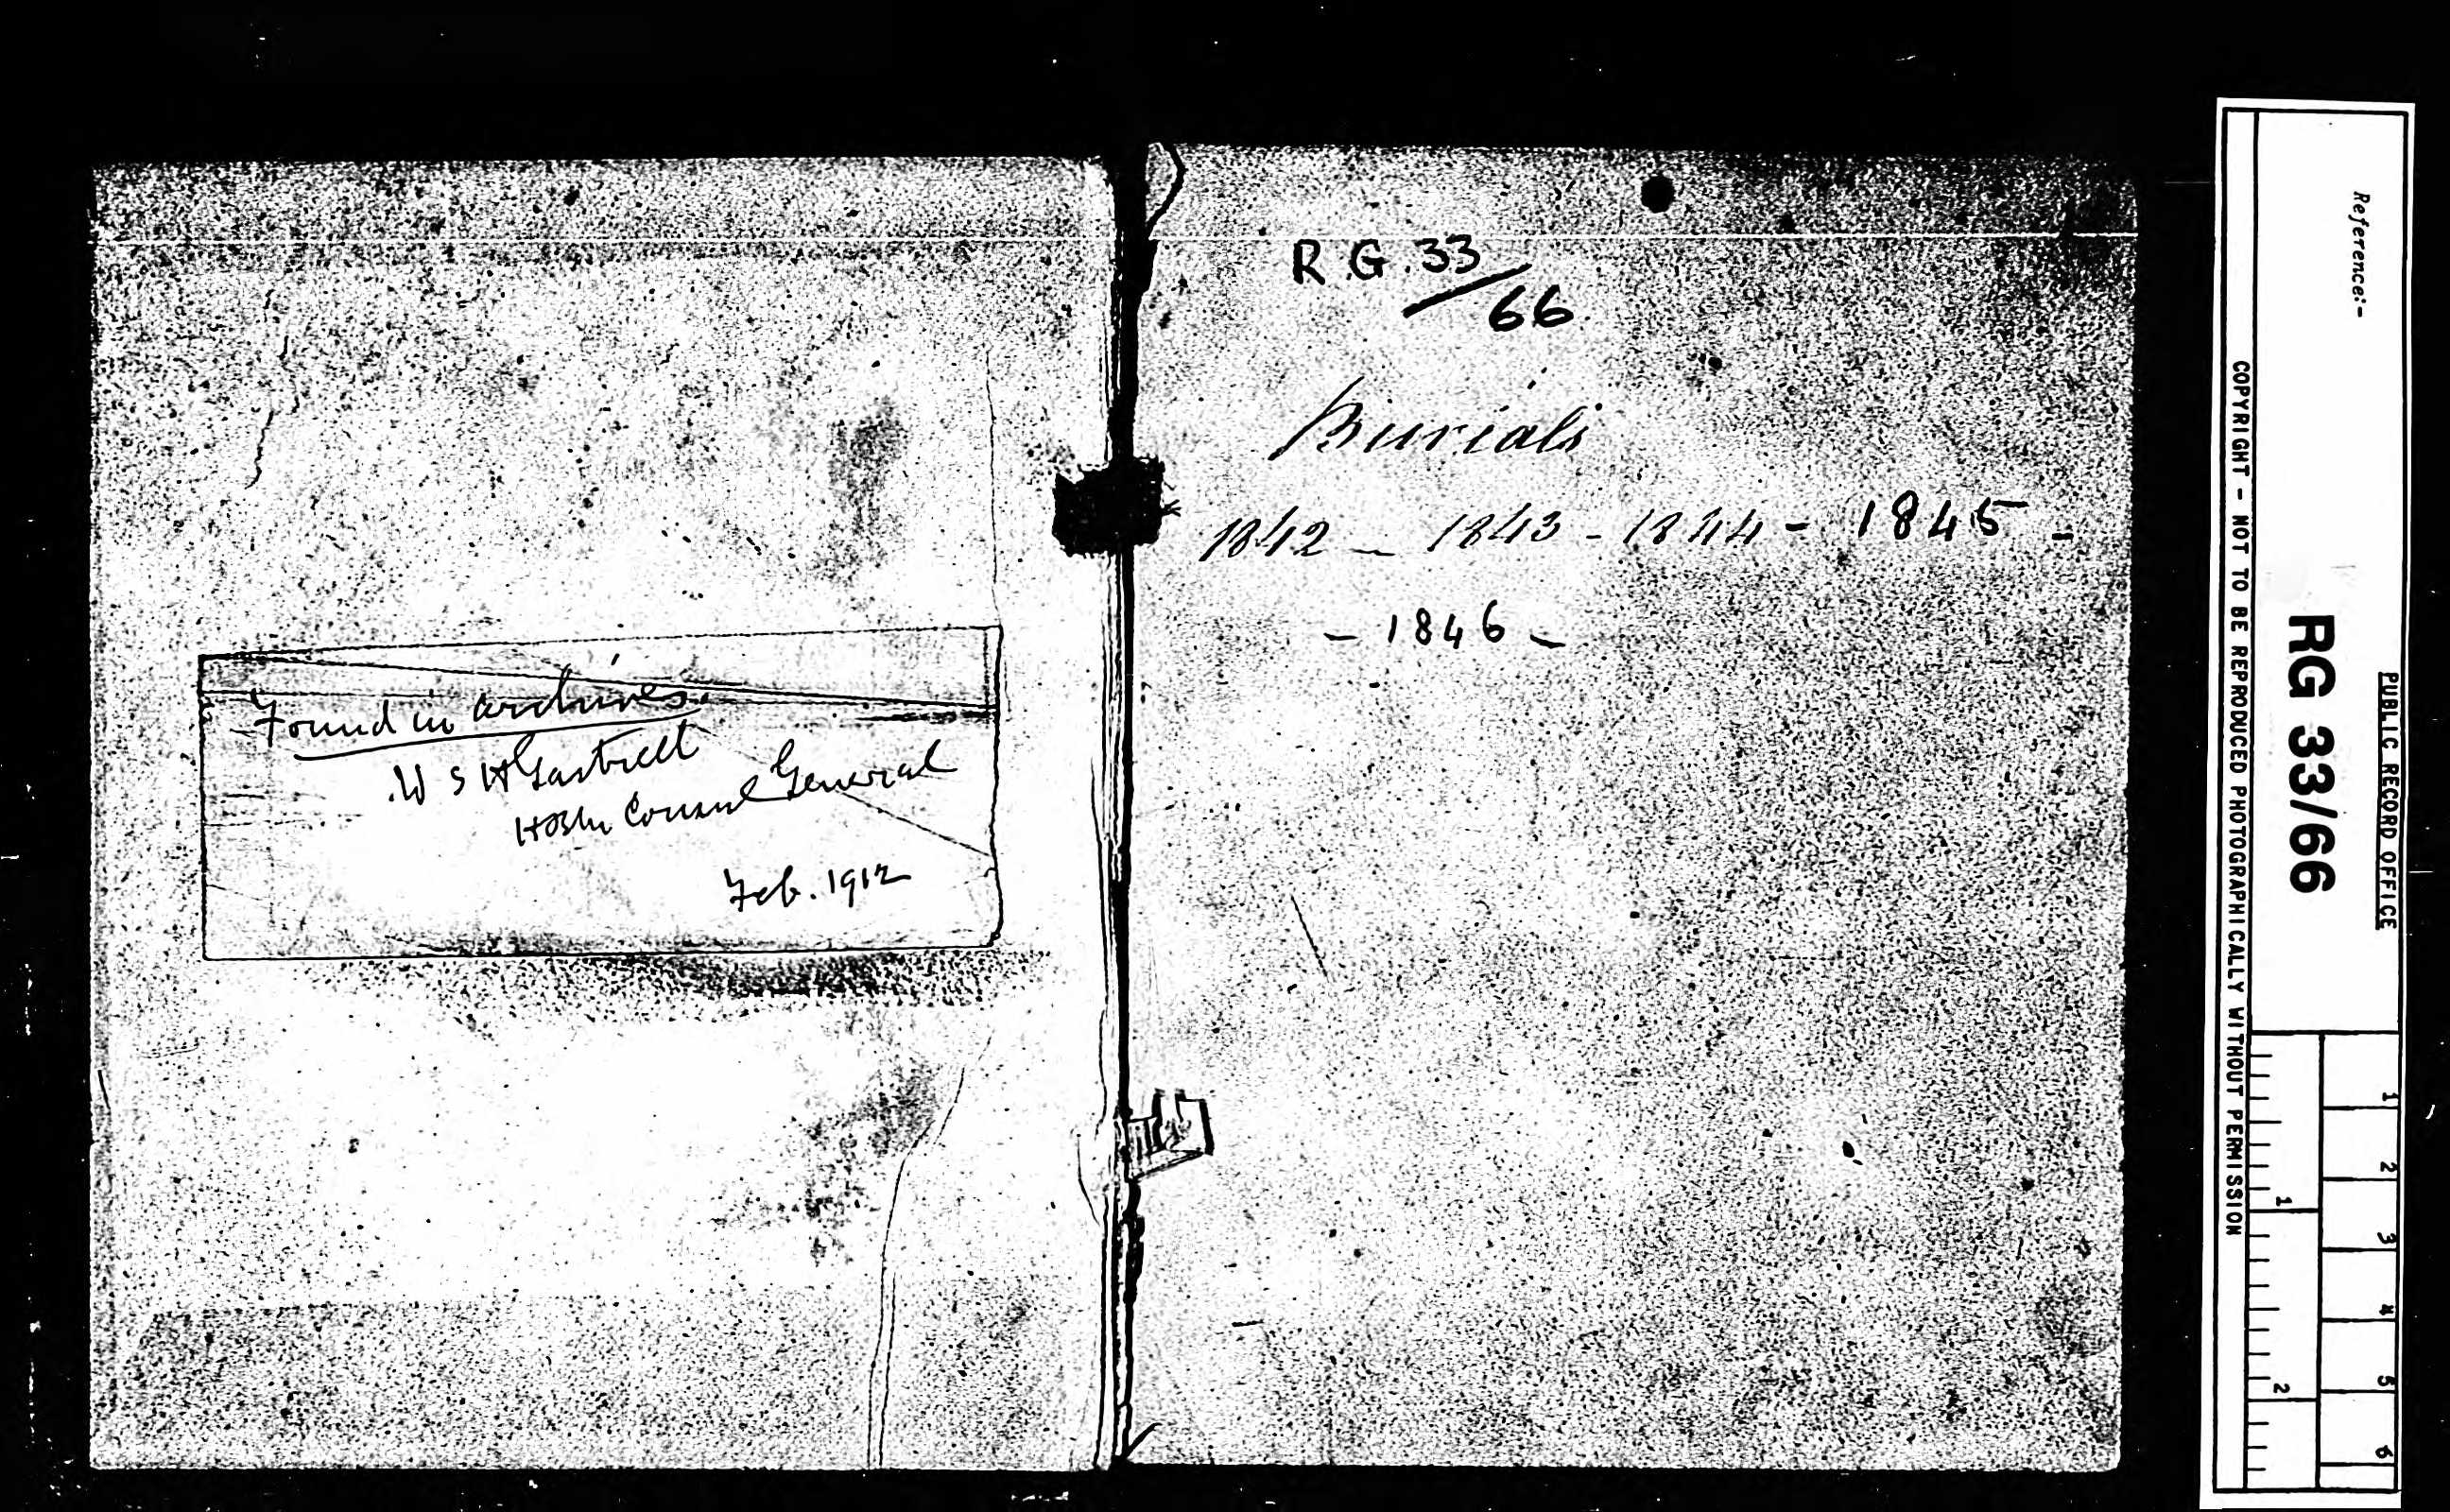 Found in archives.
W S H Gastrell
HBM Consul General
Feb. 1912
R.G. 33/66
Burials
1842 - 1843 - 1844 - 1845 -
- 1846 -
Reference:-
PUBLIC RECORD OFFICE
RG 33/66
COPYRIGHT - NOT TO BE REPRODUCED PHOTOGRAPHICALLY WITHOUT PERMISSION
1 2 3 4 5 6
1 2